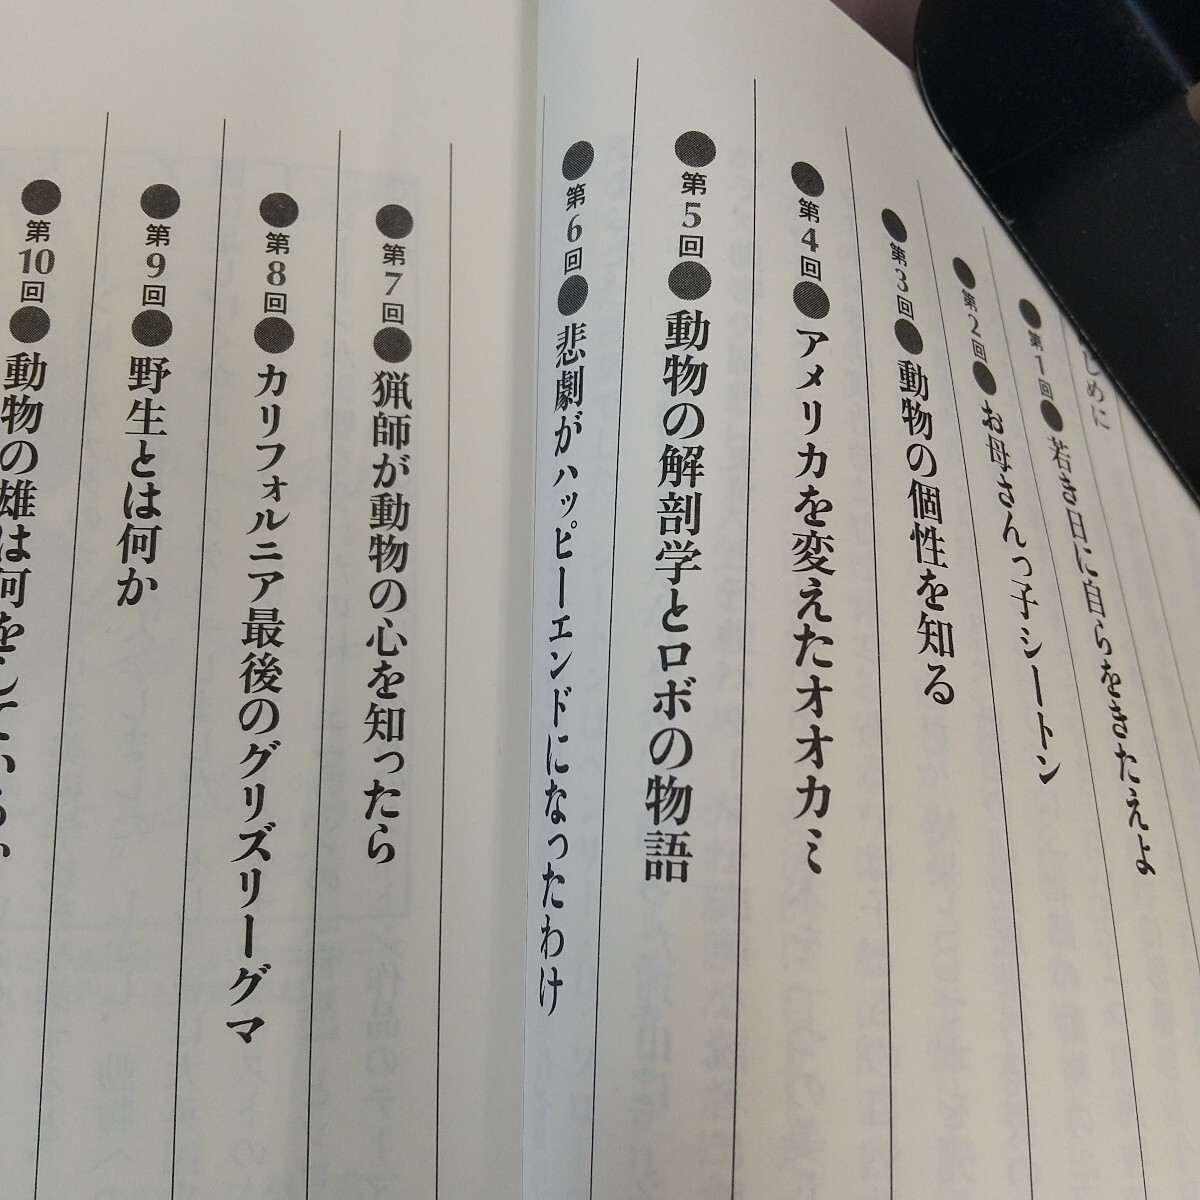 じめに
●第1回●若き日に自らをきたえよ
●第2回●お母さんっ子シートン
●第3回●動物の個性を知る
●第4回●アメリカを変えたオオカミ
●第5回●動物の解剖学とロボの物語
●第6回●悲劇がハッピーエンドになったわけ
●第7回●猟師が動物の心を知ったら
●第8回●カリフォルニア最後のグリズリーグマ
●第9回●野生とは何か
●第10回●動物の雄は何をしているか